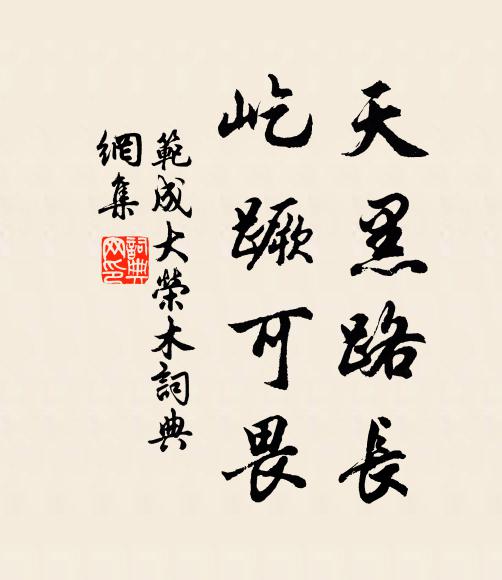 天黑路長
屹蹶可畏
範成大榮木詞典
網集
詞典网印